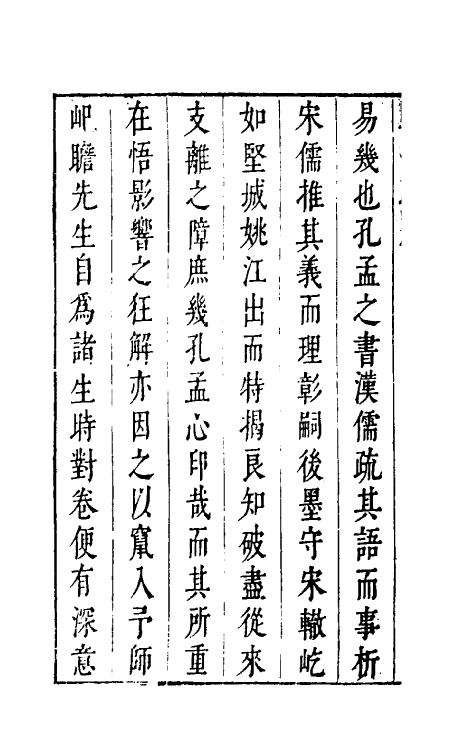 易幾也孔孟之書漢儒疏其語而事析
宋儒推其義而理彰嗣後墨守宋轍屹
如堅城姚江出而特揭良知破盡從來
支離之障庶幾孔孟心印哉而其所重
在悟影響之狂解亦因之以竄入予師
岠瞻先生自為諸生時對卷便有深意